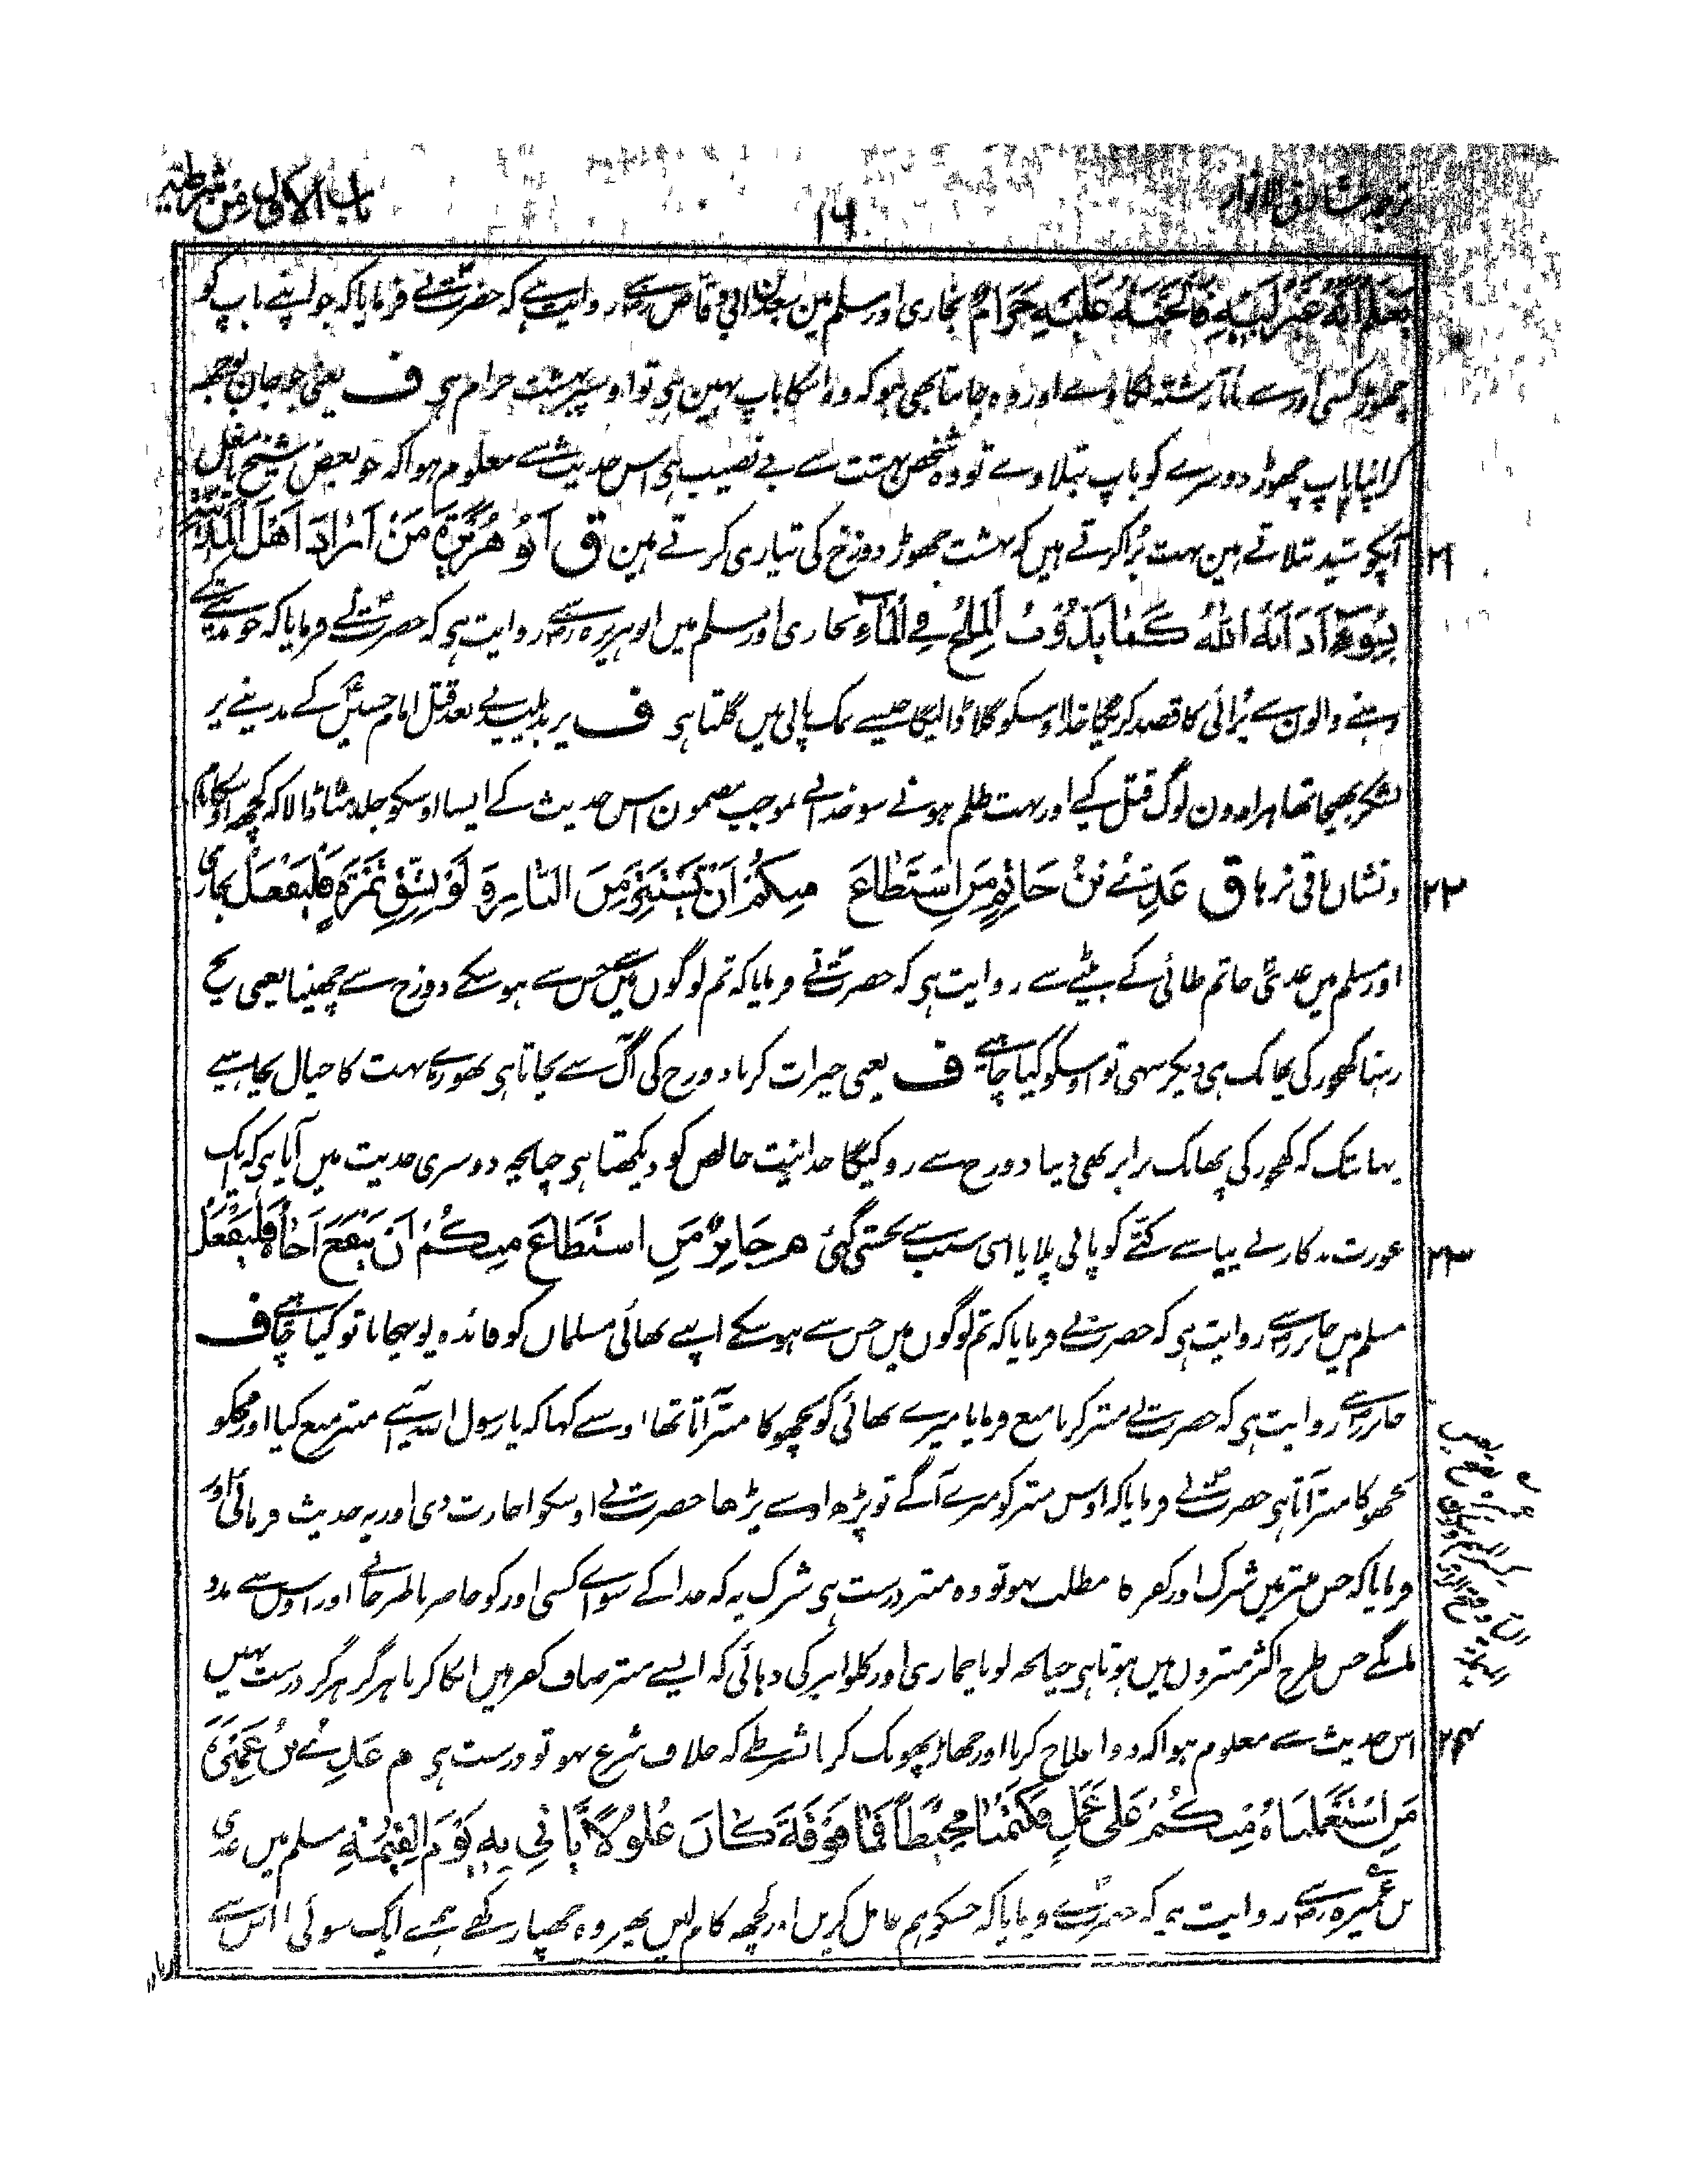 باب الاول من شرطیہ
۱۶
ترجمہ مشارق الانوار
یَعْلَمُ اَنَّهُ غَیْرُ اَبِیْهِ فَالْجَنَّةُ عَلَیْهِ حَرَامٌ بخاری اور مسلم مین سعد بن ابی وقاص رضی سے روایت ہے کہ حضرت نے فرمایا کہ جو اپنے باپ کو
چھوڑ کر کسی اور سے ناتا رشتہ لگاوے اور وہ جانتا بھی ہو کہ وہ اسکا باپ نہین ہی تو اوسپر بہشت حرام ہی ف یعنی جو جان بوجھ
کر اپنا باپ چھوڑ دوسرے کو باپ بتلاوے تو وہ شخص بہشت سے بے نصیب ہی اس حدیث سے معلوم ہوا کہ جو بعض شیخ یا مغل
۲۱ آپکو سید بتلاتے ہین بہت بُرا کرتے ہیں کہ بہشت چھوڑ دوزخ کی تیاری کرتے ہین ق اَبُوْ هُرَیْرَةَ مَنْ اَرَادَ اَهْلَ الْمَدِیْنَةِ
بِسُوْءٍ اَذَابَهُ اللهُ كَمَا یَذُوْبُ الْمِلْحُ فِی الْمَاءِ بخاری اور مسلم میں ابوہریرہ رضی سے روایت ہی کہ حضرت نے فرمایا کہ جو مدینے کے
رہنے والون سے بُرائی کا قصد کریگا خدا اوسکو گلا ڈالیگا جیسے نمک پانی میں گلتا ہی ف یزید پلید نے بعد قتل امام حسین کے مدینے پر
لشکر بھیجا تھا ہزاروں لوگ قتل کیے اور بہت ظلم ہونے سو خدا نے بموجب مضمون اس حدیث کے ایسا اوسکو جلد مٹا ڈالا کہ کچھ اوسکا نام
۲۲ و نشان باقی نرہا ق عَدِیُّ بْنُ حَاتِمٍ مَنِ اسْتَطَاعَ مِنْكُمْ اَنْ یَسْتَتِرَ مِنَ النَّارِ وَلَوْ بِشِقِّ تَمْرَةٍ فَلْیَفْعَلْ بخاری
اور مسلم میں عدی حاتم طائی کے بیٹے سے روایت ہی کہ حضرت نے فرمایا کہ تم لوگوں میں جس سے ہو سکے دوزخ سے چھپنا یعنی بچے
رہنا کھجور کی پھانک ہی دیکر سہی تو اوسکو کیا چاہیے ف یعنی خیرات کرنا دوزخ کی آگ سے بچاتا ہی تھوڑے بہت کا خیال نچاہیے
یہانتک کہ کھجور کی پھانک برابر بھی دینا دوزخ سے روکیگا خدا نیت خالص کو دیکھتا ہی چنانچہ دوسری حدیث میں آیا ہی کہ ایک
۲۳ عورت بدکار نے پیاسے کتّے کو پانی پلایا اسی سبب سے بخشی گئی م جَابِرٌ مَنِ اسْتَطَاعَ مِنْكُمْ اَنْ یَنْفَعَ اَخَاهُ فَلْیَفْعَلْ
مسلم میں جابر رضی سے روایت ہی کہ حضرت نے فرمایا کہ تم لوگوں میں جس سے ہو سکے اپنے بھائی مسلمان کو فائدہ پہنچانا تو کیا چاہیے ف
جابر رضی سے روایت ہی کہ حضرت نے منتر کرنا منع فرمایا میرے بھائی کو بچھو کا منتر آتا تھا اوسنے کہا کہ یا رسول اللہ آپنے منتر منع کیا اور مجکو
بچھو کا منتر آتا ہی حضرت نے فرمایا کہ اوس منتر کو میرے آگے تو پڑھ اوسنے پڑھا حضرت نے اوسکو اجازت دی اور یہ حدیث فرمائی اور
فرمایا کہ جس منتر میں شرک اور کفر کا مطلب نہو تو وہ منتر درست ہی شرک یہ کہ خدا کے سواے کسی اور کو حاضر ناظر جانے اور اوس سے مدد
مانگے جس طرح اکثر منتروں میں ہوتا ہی چنانچہ لونا چماری اور کلوا بیر کی دہائی کہ ایسے منتر صاف کفر ہیں انکا کرنا ہرگز ہرگز درست نہیں
۲۴ اس حدیث سے معلوم ہوا کہ دوا علاج کرنا اور جھاڑ پھونک کرنا بشرطے کہ خلاف شرع نہو تو درست ہی م عَدِیُّ بْنُ عَمِیْرَةَ
مَنِ اسْتَعْمَلْنَاهُ مِنْكُمْ عَلٰی عَمَلٍ فَكَتَمَنَا مِخْیَطًا فَمَا فَوْقَهُ كَانَ غُلُوْلًا یَّأْتِیْ بِهٖ یَوْمَ الْقِیٰمَةِ مسلم میں عدی
بن عمیرہ رضی سے روایت ہی کہ حضرت نے فرمایا کہ جسکو ہم عامل کریں اور کچھ کام لیں پھر وہ چھپا رکھے ہمسے ایک سوئی یا اس سے